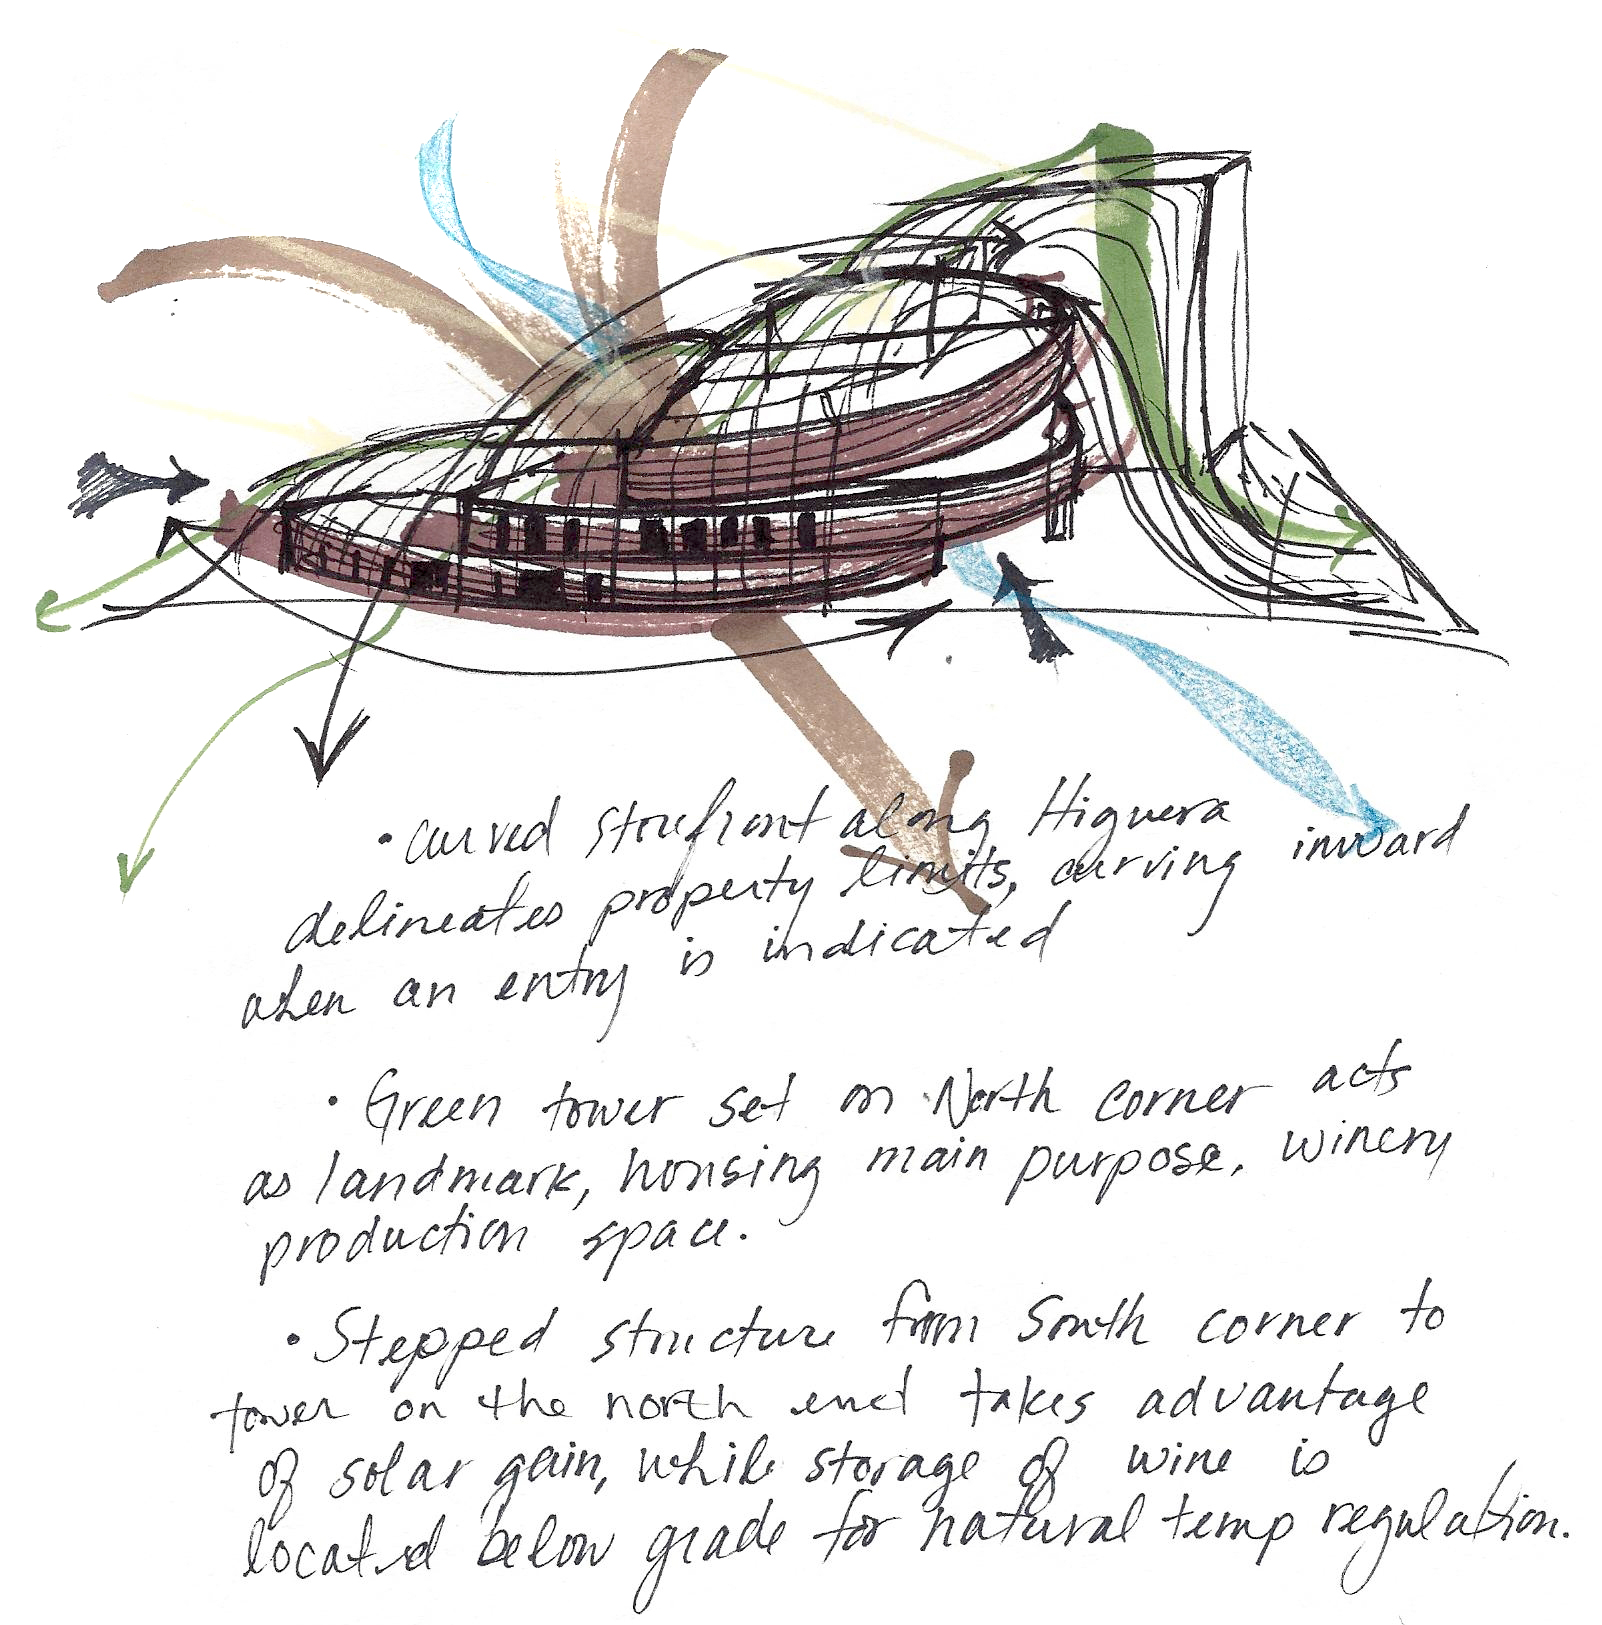 • curved storefront along Higuera
delineates property limits, curving inward
when an entry is indicated
• Green tower set on North corner acts
as landmark, housing main purpose, winery
production space.
• Stepped structure from South corner to
tower on the north end takes advantage
of solar gain, while storage of wine is
located below grade for natural temp regulation.